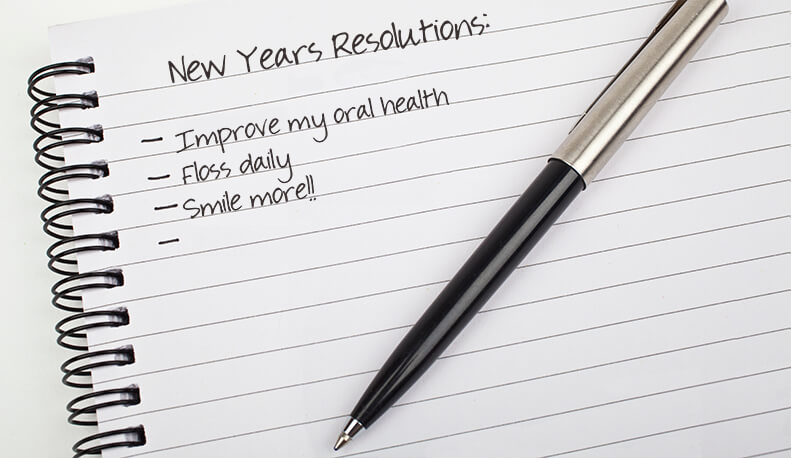 New Years Resolutions:
– Improve my oral health
– Floss daily
– Smile more!!
–